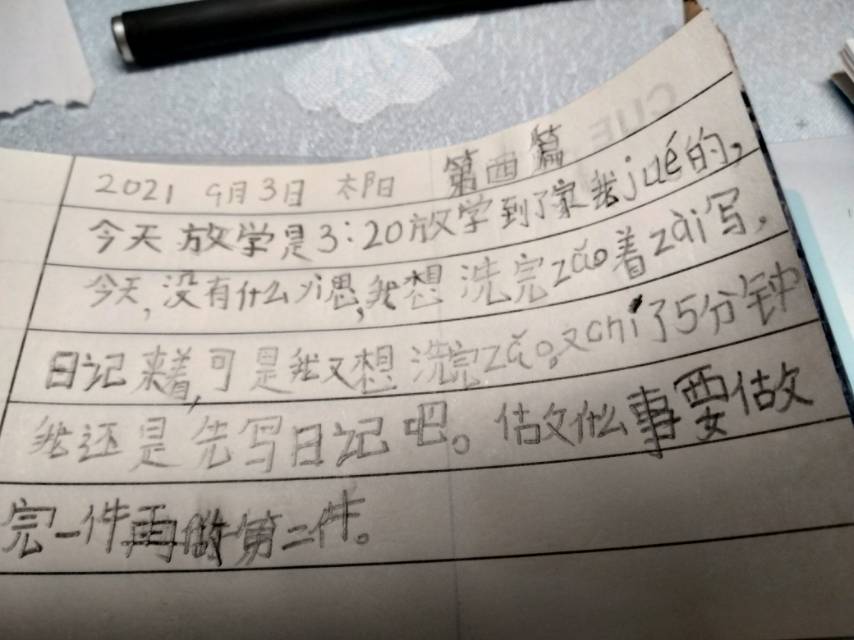 2021 9月3日 太阳 第四篇
今天放学是3:20放学到了家我jué的,
今天,没有什么yì思,我想洗完zǎo着zài写,
日记来着,可是我又想洗完zǎo,又chí了5分钟
我还是先写日记吧。做什么事要做
完一件再做第二件。